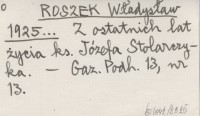 O
ROSZEK Władysław
1925... Z ostatnich lat
życia ks. Józefa Stolarczy-
ka. — Gaz. Podh. 13, nr
13.